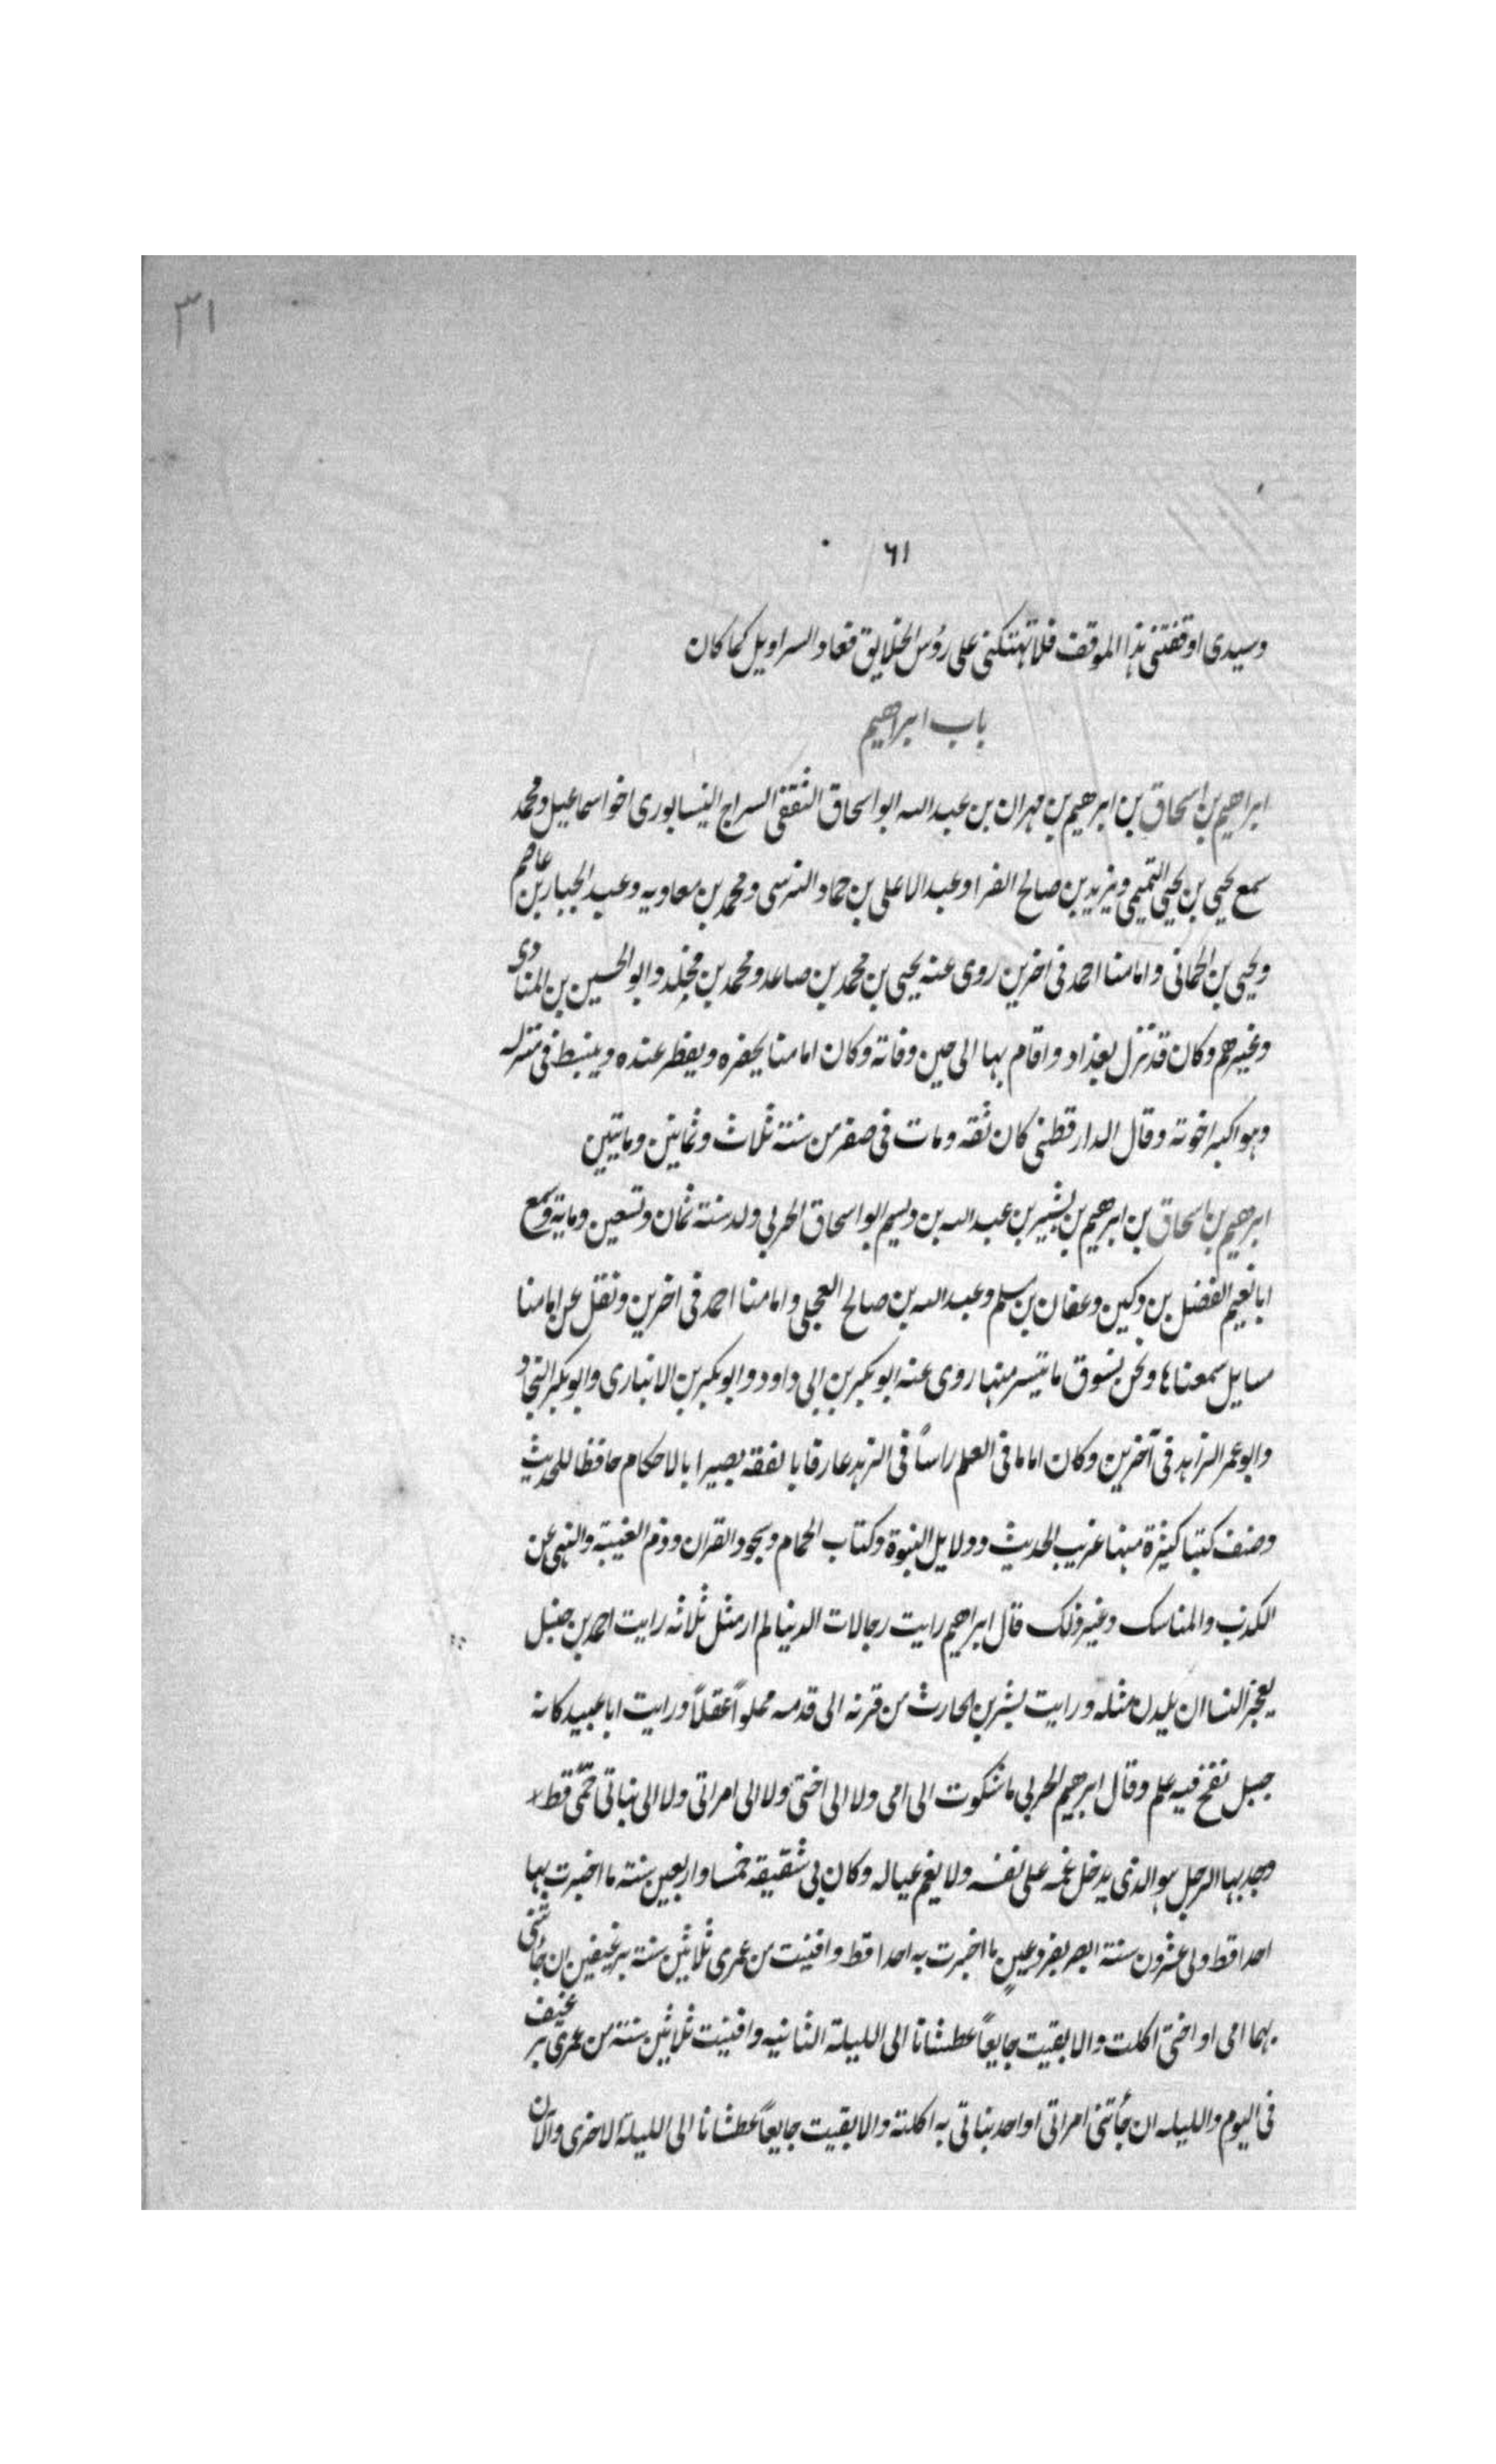 ٣١
٦١
وسيدى اوقفتنى هذا الموقف فلا تهتكنى على رؤس الخلايق فعاد السراويل كما كان
باب ابراهيم
ابراهيم بن اسحاق بن ابرهيم بن مهران بن عبد الله ابو اسحاق الثقفى السراج النيسابورى اخو اسماعيل ومحمد
سمع يحيى بن يحيى التميمى ويزيد بن صالح الفرا وعبد الاعلى بن حماد النرسى ومحمد بن معاويه وعبد الجبار بن عاصم
ويحيى بن الحمانى وامامنا احمد فى اخرين روى عنه يحيى بن محمد بن صاعد ومحمد بن مخلد وابو الحسين بن المنادى
وغيرهم وكان قد نزل بغداد واقام بها الى حين وفاته وكان امامنا يحضره ويفطر عنده وينبسط فى منزله
وهو اكبر اخوته وقال الدارقطنى كان ثقه ومات فى صفر من سنة ثلاث وثمانين ومايتين
ابرهيم بن اسحاق بن ابرهيم بن بشير بن عبد الله بن ديسم ابو اسحاق الحربى ولد سنة ثمان وتسعين وماية وسمع
ابا نعيم الفضل بن دكين وعفان بن مسلم وعبد الله بن صالح العجلى وامامنا احمد فى اخرين ونقل عن امامنا
مسايل سمعناها ونحن نسوق ما تيسر منها روى عنه ابو بكر بن ابى داود وابو بكر بن الانبارى وابو بكر النجاد
وابو عمر الزاهد فى آخرين وكان اماما فى العلم راسًا فى الزهد عارفا بالفقه بصيرا بالاحكام حافظا للحديث
وصنف كتبا كثيرة منها غريب الحديث ودلايل النبوة وكتاب الحمام وسجود القران وذم الغيبة والنهى عن
الكذب والمناسك وغير ذلك قال ابراهيم رايت رجالات الدنيا لم ار مثل ثلاثه رايت احمد بن حنبل
يعجز النسا ان يلدن مثله ورايت بشر بن الحارث من قرنه الى قدمه مملوًا عقلاً ورايت ابا عبيد كانه
جبل نفخ فيه علم وقال ابرهيم الحربى ما شكوت الى امى ولا الى اختى ولا الى امراتى ولا الى بناتى حمى قط
وجدبها الرجل هو الذى يدخل غمه على نفسه ولا يغم عياله وكان بى شقيقه خمسا واربعين سنة ما اخبرت بها
احدا قط ولى عشرون سنة ابصر بفرد عينٍ ما اخبرت به احدا قط وافنيت من عمرى ثلاثين سنة برغيفين ان جأتنى
بهما امى او اختى اكلت والا بقيت جايعاً عطشانا الى الليلة الثانيه وافنيت ثلاثين سنة من عمرى برغيف
فى اليوم والليله ان جأتنى امراتى او احد بناتى به اكلته والا بقيت جايعاً عطشانا الى الليلة الاخرى والآن